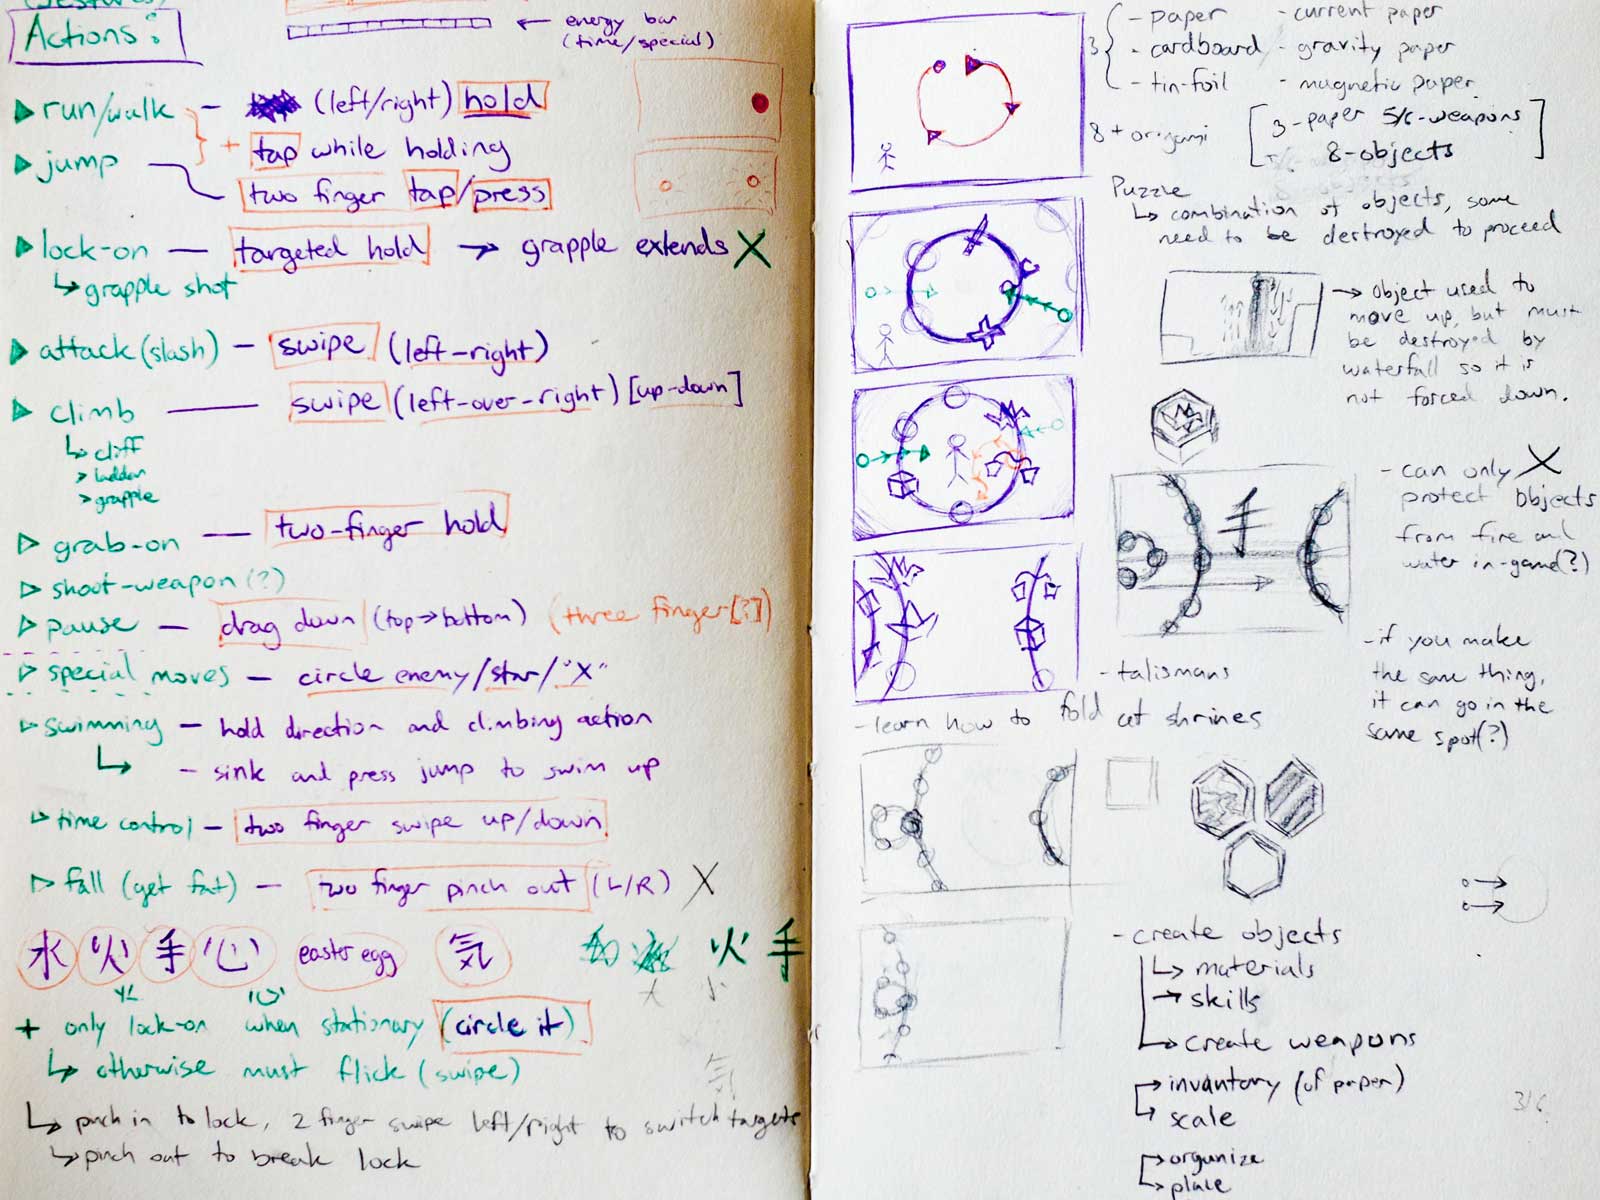 (gestures)
Actions:
energy bar
(time/special)
run/walk - (left/right) hold
+ tap while holding
jump
two finger tap/press
lock-on - targeted hold → grapple extends X
↳ grapple shot
attack (slash) - swipe (left-right)
climb - swipe (left-over-right) [up-down]
↳ cliff
> ladder
> grapple
grab-on - two-finger hold
shoot-weapon (?)
pause - drag down (top→bottom) (three finger[?])
special moves - circle enemy/star/"X"
swimming - hold direction and climbing action
↳ - sink and press jump to swim up
time control - two finger swipe up/down
fall (get fat) - two finger pinch out (L/R) X
水 火 手 心 easter egg 気 火 手
+ only lock-on when stationary (circle it)
↳ otherwise must flick (swipe)
気
↳ pinch in to lock, 2 finger swipe left/right to switch targets
↳ pinch out to break lock
3 { - paper - current paper
- cardboard - gravity paper
- tin-foil - magnetic paper
8 + origami [3-paper 5/6-weapons
8-objects]
Puzzle
↳ combination of objects, some
need to be destroyed to proceed
→ object used to
move up, but must
be destroyed by
waterfall so it is
not forced down.
手
- can only X
protect objects
from fire and
water in-game(?)
- if you make
the same thing,
it can go in the
same spot(?)
- talismans
- learn how to fold at shrines
- create objects
↳ materials
→ skills
↳ create weapons
→ inventory (of paper)
↳ scale
→ organize
↳ place